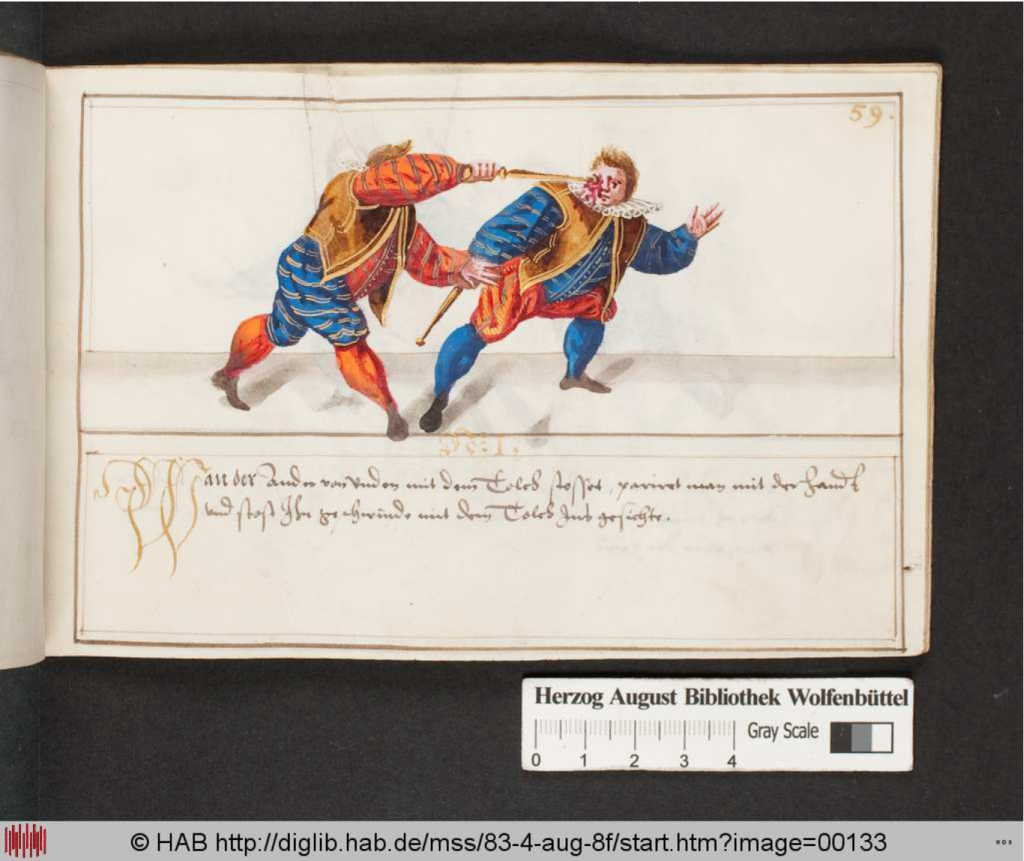 59.
N: 1:
Wan der Ander von Unden mit dem Tolch stosset, pariret man mit der handt
und stost Ihn geschwinde mit dem Tolch Ins gesichte.
Herzog August Bibliothek Wolfenbüttel
Gray Scale
0 1 2 3 4
© HAB http://diglib.hab.de/mss/83-4-aug-8f/start.htm?image=00133